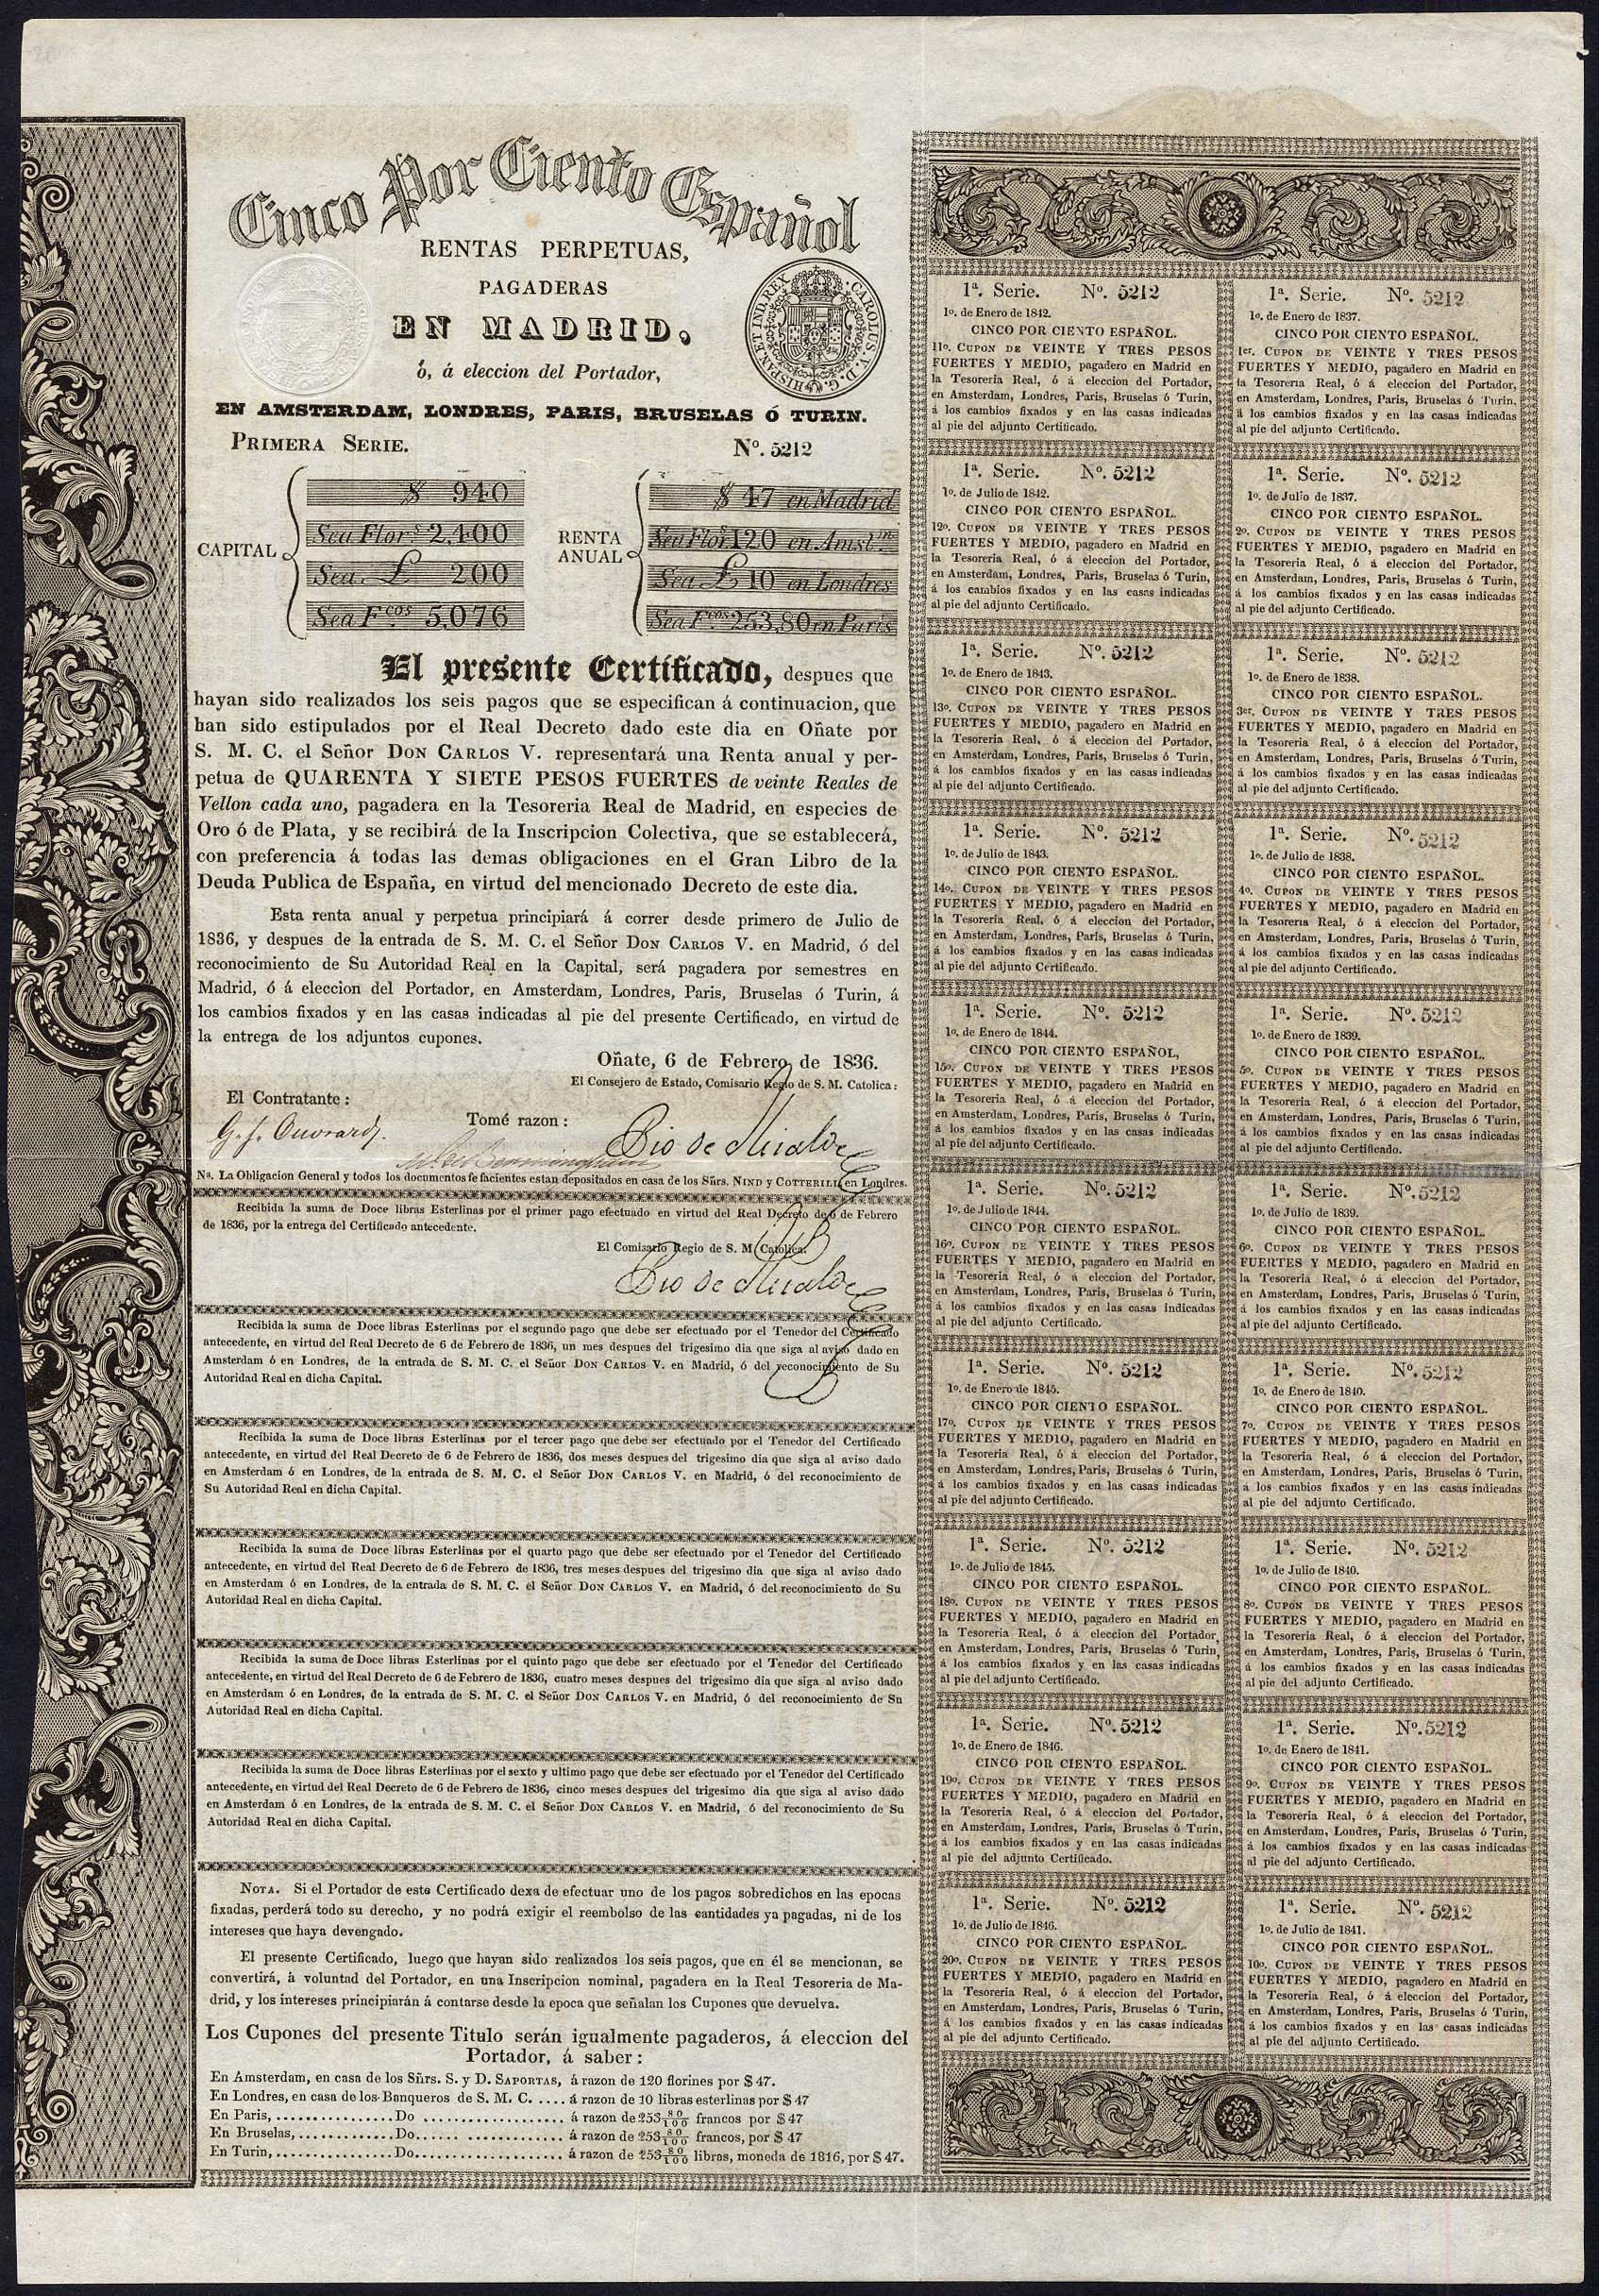 Cinco Por Ciento Español
RENTAS PERPETUAS,
PAGADERAS
EN MADRID,
ó, á eleccion del Portador,
CAROLUS. V. D. G. HISPAN. ET IND. REX
EN AMSTERDAM, LONDRES, PARIS, BRUSELAS Ó TURIN.
PRIMERA SERIE. Nº. 5212
CAPITAL
$ 940
Sea Flor.s 2,400
Sea. £ 200
Sea F.cos 5,076
RENTA ANUAL
$ 47 en Madrid
Sea Flor.s 120 en Amst.m
Sea £ 10 en Londres
Sea F.cos 253,80 en Paris
El presente Certificado, despues que
hayan sido realizados los seis pagos que se especifican á continuacion, que
han sido estipulados por el Real Decreto dado este dia en Oñate por
S. M. C. el Señor DON CARLOS V. representará una Renta anual y per-
petua de QUARENTA Y SIETE PESOS FUERTES de veinte Reales de
Vellon cada uno, pagadera en la Tesoreria Real de Madrid, en especies de
Oro ó de Plata, y se recibirá de la Inscripcion Colectiva, que se establecerá,
con preferencia á todas las demas obligaciones en el Gran Libro de la
Deuda Publica de España, en virtud del mencionado Decreto de este dia.
Esta renta anual y perpetua principiará á correr desde primero de Julio de
1836, y despues de la entrada de S. M. C. el Señor DON CARLOS V. en Madrid, ó del
reconocimiento de Su Autoridad Real en la Capital, será pagadera por semestres en
Madrid, ó á eleccion del Portador, en Amsterdam, Londres, Paris, Bruselas ó Turin, á
los cambios fixados y en las casas indicadas al pie del presente Certificado, en virtud de
la entrega de los adjuntos cupones.
Oñate, 6 de Febrero de 1836.
El Consejero de Estado, Comisario Regio de S. M. Catolica:
El Contratante:
Tomé razon:
G. J. Ouvrard
Nª. La Obligacion General y todos los documentos fe facientes estan depositados en casa de los Sñrs. NIND y COTTERILL en Londres.
Recibida la suma de Doce libras Esterlinas por el primer pago efectuado en virtud del Real Decreto de 6 de Febrero
de 1836, por la entrega del Certificado antecedente.
El Comisario Regio de S. M. Catolica.
Recibida la suma de Doce libras Esterlinas por el segundo pago que debe ser efectuado por el Tenedor del Certificado
antecedente, en virtud del Real Decreto de 6 de Febrero de 1836, un mes despues del trigesimo dia que siga al aviso dado en
Amsterdam ó en Londres, de la entrada de S. M. C. el Señor DON CARLOS V. en Madrid, ó del reconocimiento de Su
Autoridad Real en dicha Capital.
Recibida la suma de Doce libras Esterlinas por el tercer pago que debe ser efectuado por el Tenedor del Certificado
antecedente, en virtud del Real Decreto de 6 de Febrero de 1836, dos meses despues del trigesimo dia que siga al aviso dado
en Amsterdam ó en Londres, de la entrada de S. M. C. el Señor DON CARLOS V. en Madrid, ó del reconocimiento de
Su Autoridad Real en dicha Capital.
Recibida la suma de Doce libras Esterlinas por el quarto pago que debe ser efectuado por el Tenedor del Certificado
antecedente, en virtud del Real Decreto de 6 de Febrero de 1836, tres meses despues del trigesimo dia que siga al aviso dado
en Amsterdam ó en Londres, de la entrada de S. M. C. el Señor DON CARLOS V. en Madrid, ó del reconocimiento de Su
Autoridad Real en dicha Capital.
Recibida la suma de Doce libras Esterlinas por el quinto pago que debe ser efectuado por el Tenedor del Certificado
antecedente, en virtud del Real Decreto de 6 de Febrero de 1836, cuatro meses despues del trigesimo dia que siga al aviso dado
en Amsterdam ó en Londres, de la entrada de S. M. C. el Señor DON CARLOS V. en Madrid, ó del reconocimiento de Su
Autoridad Real en dicha Capital.
Recibida la suma de Doce libras Esterlinas por el sexto y ultimo pago que debe ser efectuado por el Tenedor del Certificado
antecedente, en virtud del Real Decreto de 6 de Febrero de 1836, cinco meses despues del trigesimo dia que siga al aviso dado
en Amsterdam ó en Londres, de la entrada de S. M. C. el Señor DON CARLOS V. en Madrid, ó del reconocimiento de Su
Autoridad Real en dicha Capital.
NOTA. Si el Portador de este Certificado dexa de efectuar uno de los pagos sobredichos en las epocas
fixadas, perderá todo su derecho, y no podrá exigir el reembolso de las cantidades ya pagadas, ni de los
intereses que haya devengado.
El presente Certificado, luego que hayan sido realizados los seis pagos, que en él se mencionan, se
convertirá, á voluntad del Portador, en una Inscripcion nominal, pagadera en la Real Tesoreria de Ma-
drid, y los intereses principiarán á contarse desde la epoca que señalan los Cupones que devuelva.
Los Cupones del presente Titulo serán igualmente pagaderos, á eleccion del
Portador, á saber:
En Amsterdam, en casa de los Sñrs. S. y D. SAPORTAS, á razon de 120 florines por $ 47.
En Londres, en casa de los Banqueros de S. M. C. .... á razon de 10 libras esterlinas por $ 47
En Paris, ................Do .................. á razon de 253 80/100 francos por $ 47
En Bruselas, .............Do...... ............. á razon de 253 80/100 francos, por $ 47
En Turin, ................Do.................... á razon de 253 80/100 libras, moneda de 1816, por $ 47.
1ª. Serie. Nº. 5212
1º. de Enero de 1842.
CINCO POR CIENTO ESPAÑOL.
11º. CUPON DE VEINTE Y TRES PESOS
FUERTES Y MEDIO, pagadero en Madrid en
la Tesoreria Real, ó á eleccion del Portador,
en Amsterdam, Londres, Paris, Bruselas ó Turin,
á los cambios fixados y en las casas indicadas
al pie del adjunto Certificado.
1ª. Serie. Nº. 5212
1º. de Julio de 1842.
CINCO POR CIENTO ESPAÑOL.
12º. CUPON DE VEINTE Y TRES PESOS
FUERTES Y MEDIO, pagadero en Madrid en
la Tesoreria Real, ó á eleccion del Portador,
en Amsterdam, Londres, Paris, Bruselas ó Turin,
á los cambios fixados y en las casas indicadas
al pie del adjunto Certificado.
1ª. Serie. Nº. 5212
1º. de Enero de 1843.
CINCO POR CIENTO ESPAÑOL.
13º. CUPON DE VEINTE Y TRES PESOS
FUERTES Y MEDIO, pagadero en Madrid en
la Tesoreria Real, ó á eleccion del Portador,
en Amsterdam, Londres, Paris, Bruselas ó Turin,
á los cambios fixados y en las casas indicadas
al pie del adjunto Certificado.
1ª. Serie. Nº. 5212
1º. de Julio de 1843.
CINCO POR CIENTO ESPAÑOL.
14º. CUPON DE VEINTE Y TRES PESOS
FUERTES Y MEDIO, pagadero en Madrid en
la Tesoreria Real, ó á eleccion del Portador,
en Amsterdam, Londres, Paris, Bruselas ó Turin,
á los cambios fixados y en las casas indicadas
al pie del adjunto Certificado.
1ª. Serie. Nº. 5212
1º. de Enero de 1844.
CINCO POR CIENTO ESPAÑOL,
15º. CUPON DE VEINTE Y TRES PESOS
FUERTES Y MEDIO, pagadero en Madrid en
la Tesoreria Real, ó á eleccion del Portador,
en Amsterdam, Londres, Paris, Bruselas ó Turin,
á los cambios fixados y en las casas indicadas
al pie del adjunto Certificado.
1ª. Serie. Nº. 5212
1º. de Julio de 1844.
CINCO POR CIENTO ESPAÑOL.
16º. CUPON DE VEINTE Y TRES PESOS
FUERTES Y MEDIO, pagadero en Madrid en
la Tesoreria Real, ó á eleccion del Portador,
en Amsterdam, Londres, Paris, Bruselas ó Turin,
á los cambios fixados y en las casas indicadas
al pie del adjunto Certificado.
1ª. Serie. Nº. 5212
1º. de Enero de 1845.
CINCO POR CIENTO ESPAÑOL.
17º. CUPON DE VEINTE Y TRES PESOS
FUERTES Y MEDIO, pagadero en Madrid en
la Tesoreria Real, ó á eleccion del Portador,
en Amsterdam, Londres, Paris, Bruselas ó Turin,
á los cambios fixados y en las casas indicadas
al pie del adjunto Certificado.
1ª. Serie. Nº. 5212
1º. de Julio de 1845.
CINCO POR CIENTO ESPAÑOL.
18º. CUPON DE VEINTE Y TRES PESOS
FUERTES Y MEDIO, pagadero en Madrid en
la Tesoreria Real, ó á eleccion del Portador,
en Amsterdam, Londres, Paris, Bruselas ó Turin,
á los cambios fixados y en las casas indicadas
al pie del adjunto Certificado.
1ª. Serie. Nº. 5212
1º. de Enero de 1846.
CINCO POR CIENTO ESPAÑOL.
19º. CUPON DE VEINTE Y TRES PESOS
FUERTES Y MEDIO, pagadero en Madrid en
la Tesoreria Real, ó á eleccion del Portador,
en Amsterdam, Londres, Paris, Bruselas ó Turin,
á los cambios fixados y en las casas indicadas
al pie del adjunto Certificado.
1ª. Serie. Nº. 5212
1º. de Julio de 1846.
CINCO POR CIENTO ESPAÑOL.
20º. CUPON DE VEINTE Y TRES PESOS
FUERTES Y MEDIO, pagadero en Madrid en
la Tesoreria Real, ó á eleccion del Portador,
en Amsterdam, Londres, Paris, Bruselas ó Turin,
á los cambios fixados y en las casas indicadas
al pie del adjunto Certificado.
1ª. Serie. Nº. 5212
1º. de Enero de 1837.
CINCO POR CIENTO ESPAÑOL.
1er. CUPON DE VEINTE Y TRES PESOS
FUERTES Y MEDIO, pagadero en Madrid en
la Tesoreria Real, ó á eleccion del Portador,
en Amsterdam, Londres, Paris, Bruselas ó Turin,
á los cambios fixados y en las casas indicadas
al pie del adjunto Certificado.
1ª. Serie. Nº. 5212
1º. de Julio de 1837.
CINCO POR CIENTO ESPAÑOL.
2º. CUPON DE VEINTE Y TRES PESOS
FUERTES Y MEDIO, pagadero en Madrid en
la Tesoreria Real, ó á eleccion del Portador,
en Amsterdam, Londres, Paris, Bruselas ó Turin,
á los cambios fixados y en las casas indicadas
al pie del adjunto Certificado.
1ª. Serie. Nº. 5212
1º. de Enero de 1838.
CINCO POR CIENTO ESPAÑOL.
3er. CUPON DE VEINTE Y TRES PESOS
FUERTES Y MEDIO, pagadero en Madrid en
la Tesoreria Real, ó á eleccion del Portador,
en Amsterdam, Londres, Paris, Bruselas ó Turin,
á los cambios fixados y en las casas indicadas
al pie del adjunto Certificado.
1ª. Serie. Nº. 5212
1º. de Julio de 1838.
CINCO POR CIENTO ESPAÑOL.
4º. CUPON DE VEINTE Y TRES PESOS
FUERTES Y MEDIO, pagadero en Madrid en
la Tesoreria Real, ó á eleccion del Portador,
en Amsterdam, Londres, Paris, Bruselas ó Turin,
á los cambios fixados y en las casas indicadas
al pie del adjunto Certificado.
1ª. Serie. Nº. 5212
1º. de Enero de 1839.
CINCO POR CIENTO ESPAÑOL.
5º. CUPON DE VEINTE Y TRES PESOS
FUERTES Y MEDIO, pagadero en Madrid en
la Tesoreria Real, ó á eleccion del Portador,
en Amsterdam, Londres, Paris, Bruselas ó Turin,
á los cambios fixados y en las casas indicadas
al pie del adjunto Certificado.
1ª. Serie. Nº. 5212
1º. de Julio de 1839.
CINCO POR CIENTO ESPAÑOL.
6º. CUPON DE VEINTE Y TRES PESOS
FUERTES Y MEDIO, pagadero en Madrid en
la Tesoreria Real, ó á eleccion del Portador,
en Amsterdam, Londres, Paris, Bruselas ó Turin,
á los cambios fixados y en las casas indicadas
al pie del adjunto Certificado.
1ª. Serie. Nº. 5212
1º. de Enero de 1840.
CINCO POR CIENTO ESPAÑOL.
7º. CUPON DE VEINTE Y TRES PESOS
FUERTES Y MEDIO, pagadero en Madrid en
la Tesoreria Real, ó á eleccion del Portador,
en Amsterdam, Londres, Paris, Bruselas ó Turin,
á los cambios fixados y en las casas indicadas
al pie del adjunto Certificado.
1ª. Serie. Nº. 5212
1º. de Julio de 1840.
CINCO POR CIENTO ESPAÑOL.
8º. CUPON DE VEINTE Y TRES PESOS
FUERTES Y MEDIO, pagadero en Madrid en
la Tesoreria Real, ó á eleccion del Portador,
en Amsterdam, Londres, Paris, Bruselas ó Turin,
á los cambios fixados y en las casas indicadas
al pie del adjunto Certificado.
1ª. Serie. Nº. 5212
1º. de Enero de 1841.
CINCO POR CIENTO ESPAÑOL.
9º. CUPON DE VEINTE Y TRES PESOS
FUERTES Y MEDIO, pagadero en Madrid en
la Tesoreria Real, ó á eleccion del Portador,
en Amsterdam, Londres, Paris, Bruselas ó Turin,
á los cambios fixados y en las casas indicadas
al pie del adjunto Certificado.
1ª. Serie. Nº. 5212
1º. de Julio de 1841.
CINCO POR CIENTO ESPAÑOL.
10º. CUPON DE VEINTE Y TRES PESOS
FUERTES Y MEDIO, pagadero en Madrid en
la Tesoreria Real, ó á eleccion del Portador,
en Amsterdam, Londres, Paris, Bruselas ó Turin,
á los cambios fixados y en las casas indicadas
al pie del adjunto Certificado.